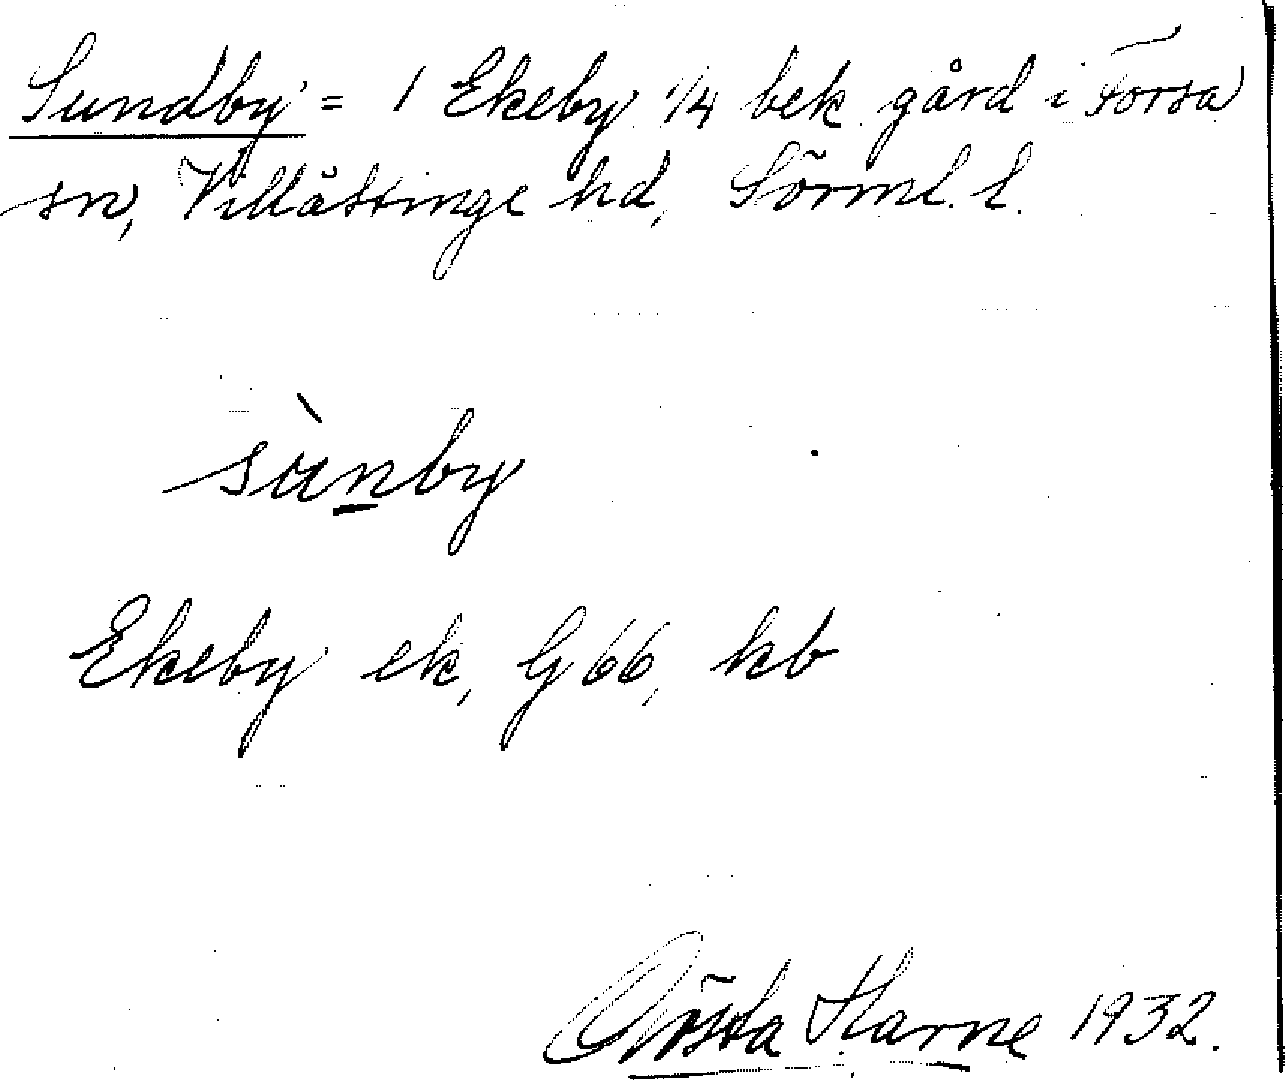 Sundby = 1 Ekeby 1/4 bek gård i Forsa
sn, Villåttinge hd, Sörml. l.
sùnby
Ekeby ek, G 66, kb
Gösta Harne 1932.